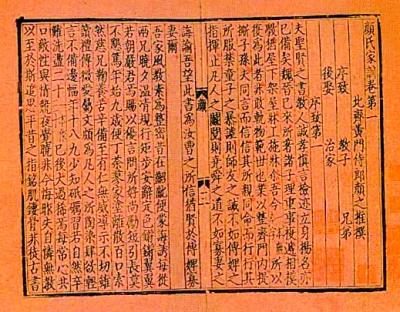 顏氏家訓卷第一
北齊黃門侍郎顏之推撰
序致 教子 兄弟
後娶 治家
序致第一
夫聖賢之書教人誠孝慎言檢迹立身揚名亦
已備矣魏晉已來所著諸子理重事複遞相模
斆猶屋下架屋牀上施牀爾吾今所以
復為此者非敢軌物範世也業以整齊門內提
撕子孫夫同言而信信其所親同命而行行其
所服禁童子之暴謔則師友之誡不如傅婢之
指揮止凡人之鬭鬩則堯舜之道不如寡妻之
誨諭吾望此書為汝曹之所信猶賢於傅婢寡
妻爾
吾家風教素為整密昔在齠齔便蒙誨誘每從
兩兄曉夕溫凊規行矩步安辭定色鏘鏘翼翼
若朝嚴君焉賜以優言問所好尚勵短引長莫
不懇篤年始九歲便丁荼蓼家塗離散百口索
然慈兄鞠養苦辛備至有仁無威導示不切雖
讀禮傳微愛屬文頗為凡人之所陶染肆欲輕
言不備邊幅年十八九少知砥礪習若自然卒
難洗盪二十已後大過稀焉每常心共
口敵性與情競夜覺曉非今悔昨失自憐無教
以至於斯追思平昔之指銘肌鏤骨非徒古書